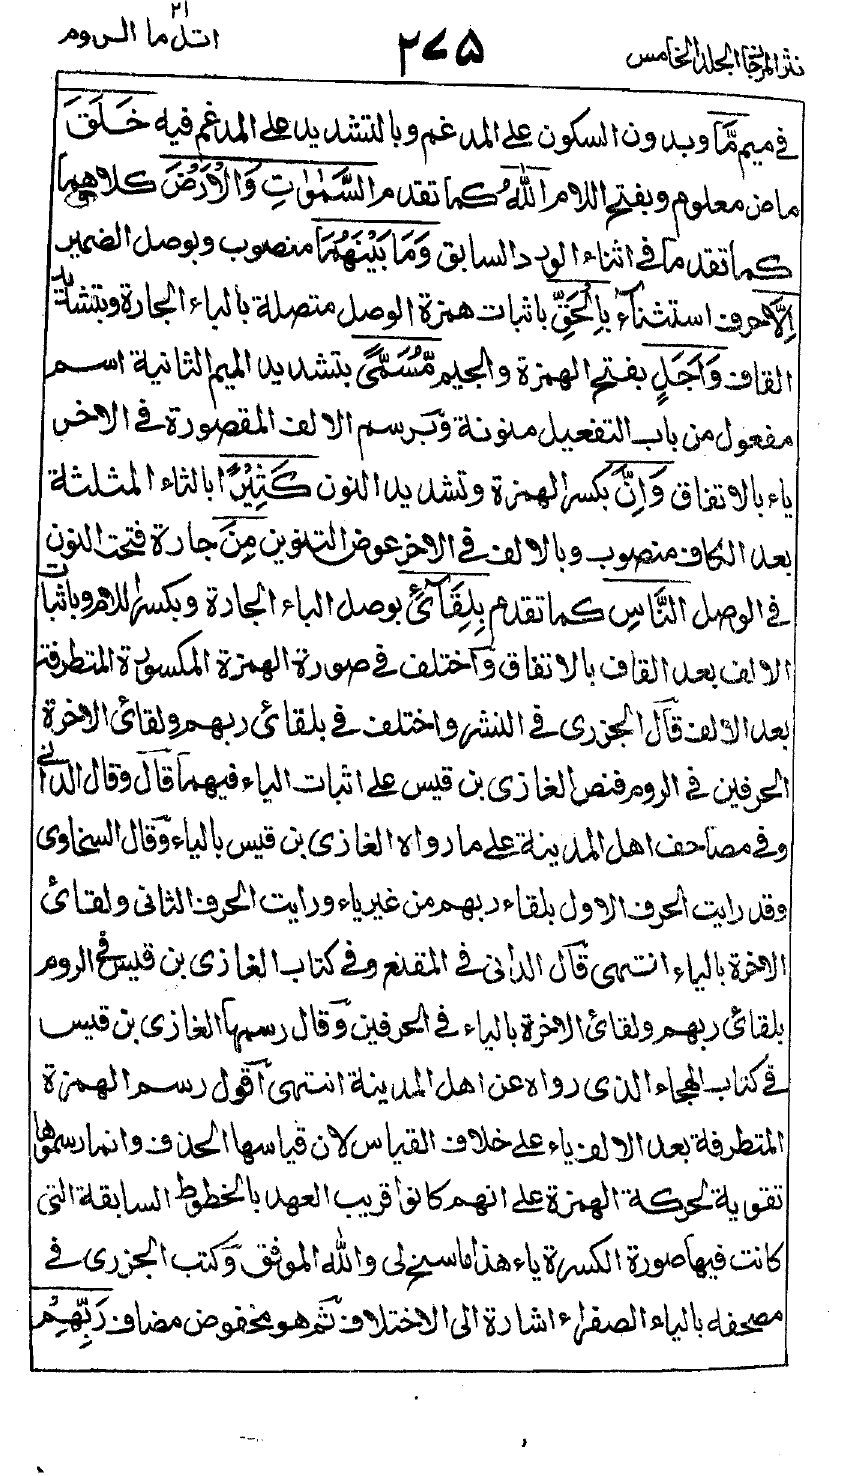 نثر المرجان المجلد الخامس
٢٧٥
اتل ما ٢١ الروم
في ميم مَّا وبدون السكون على المدغم وبالتشديد على المدغم فيه خَلَقَ
ماض معلوم وبفتح اللام اللهُ كما تقدم السَّمٰوٰتِ وَالْاَرْضَ كلاهما
كما تقدما في اثناء الورد السابق وَمَا بَيْنَهُمَا منصوب وبوصل الضمير
اِلَّا حرف استثناء بِالْحَقِّ باثبات همزة الوصل متصلة بالباء الجارة وبتشديد
القاف وَاَجَلٍ بفتح الهمزة والجيم مُّسَمًّى بتشديد الميم الثانية اسم
مفعول من باب التفعيل منونة وبرسم الالف المقصورة في الاخر
ياء بالاتفاق وَاِنَّ بكسر الهمزة وتشديد النون كَثِيْرًا بالثاء المثلثة
بعد الكاف منصوب وبالالف في الاخر عوض التنوين مِنَ جارة فتحت النون
في الوصل النَّاسِ كما تقدم بِلِقَآئِ بوصل الباء الجارة وبكسر اللام وباثبات
الالف بعد القاف بالاتفاق واختلف في صورة الهمزة المكسورة المتطرفة
بعد الالف قال الجزري في النشر واختلف في بلقائ ربهم ولقائ الاخرة
الحرفين في الروم فنص الغازي بن قيس على اثبات الياء فيهما قال وقال الداني
وفي مصاحف اهل المدينة على ما رواه الغازي بن قيس بالياء وقال السخاوي
وقد رايت الحرف الاول بلقاء ربهم من غير ياء ورايت الحرف الثاني ولقائ
الاخرة بالياء انتهى قال الداني في المقنع وفي كتاب الغازي بن قيس في الروم
بلقائ ربهم ولقائ الاخرة بالياء في الحرفين وقال رسمها الغازي بن قيس
في كتاب الهجاء الذي رواه عن اهل المدينة انتهى اقول رسم الهمزة
المتطرفة بعد الالف ياء على خلاف القياس لان قياسها الحذف وانما رسموها
تقوية لحركة الهمزة على انهم كانوا قريب العهد بالخطوط السابقة التي
كانت فيها صورة الكسرة ياء هذا ما سنح لي والله الموفق وكتب الجزري في
مصحفه بالياء الصفراء اشارة الى الاختلاف ثم هو مخفوض مضاف رَبِّهِمْ